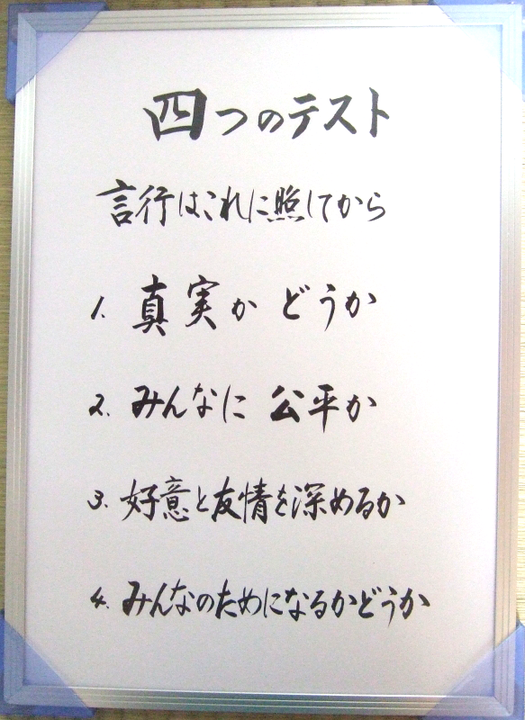 四つのテスト
言行はこれに照してから
1. 真実か どうか
2. みんなに 公平か
3. 好意と友情を深めるか
4. みんなのためになるかどうか